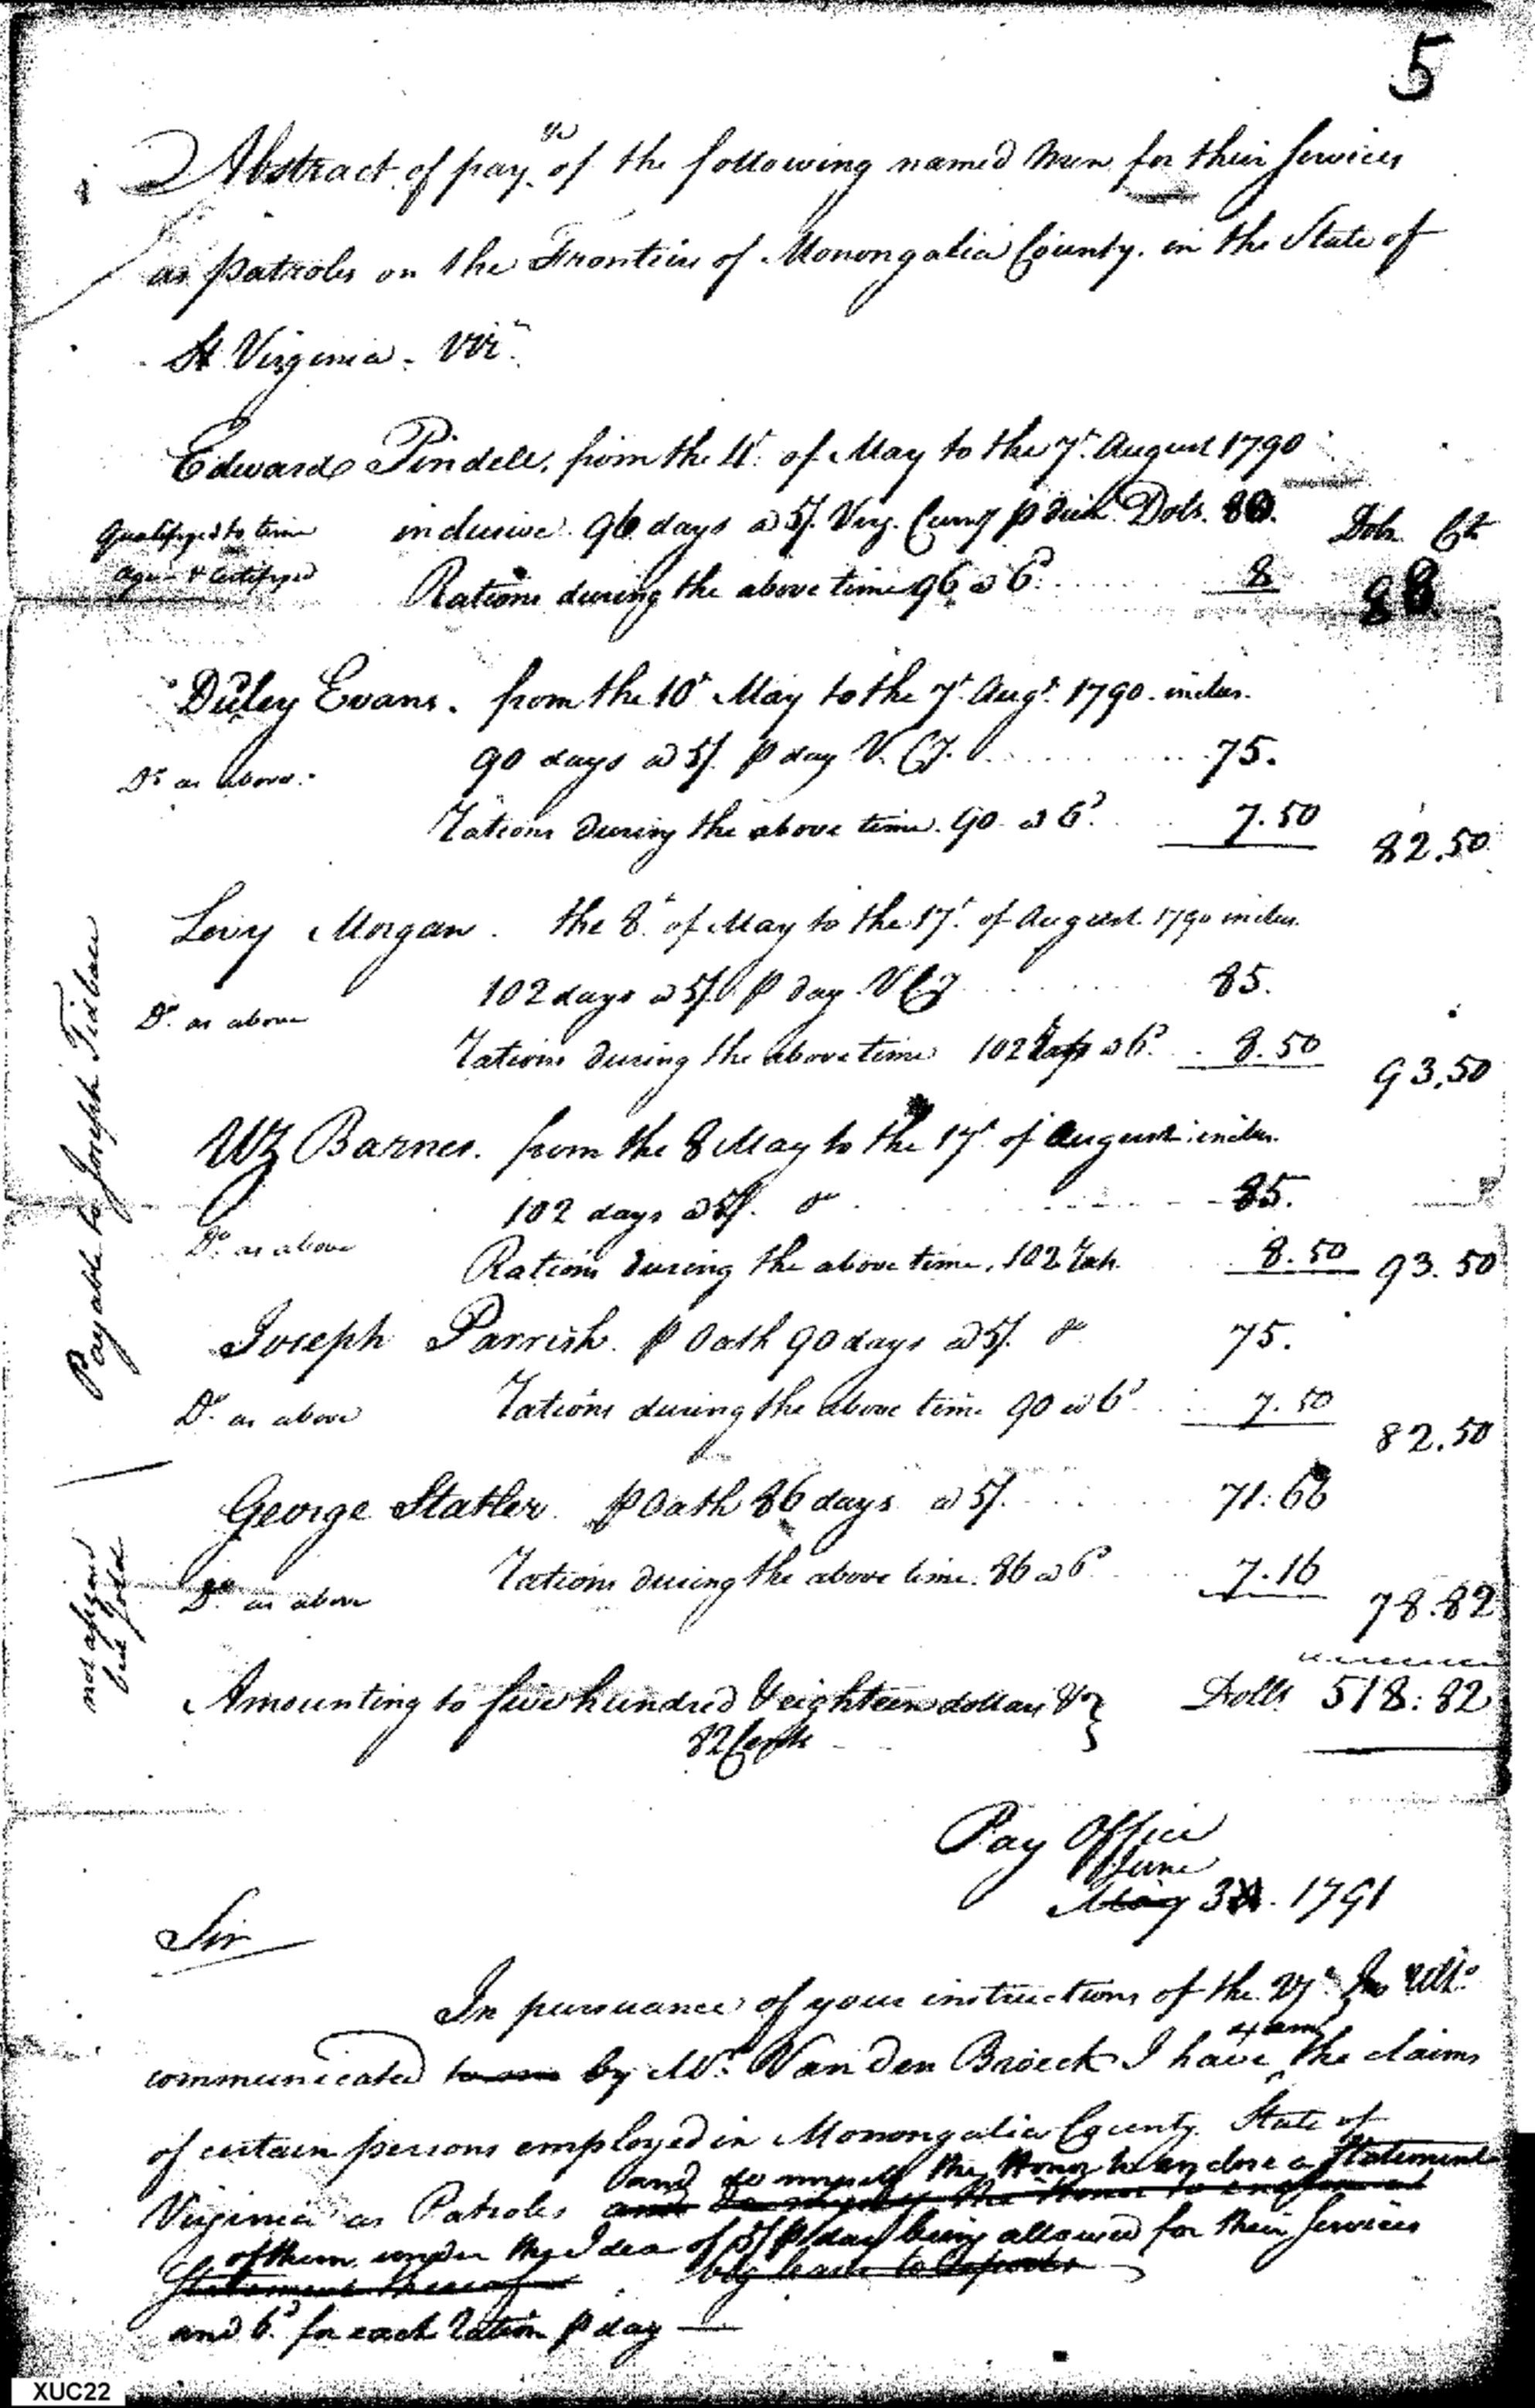 5
Abstract of pay of the following named Men for their Services
as patroles on the Frontiers of Monongalia County. in the State of
Virginia - Viz.
Edward Pindell, from the 4t. of May to the 7t. August 1790
inclusive 96 days a 5/. Virg. Curry p diem Dols. 80.
Dols. Cts
Qualifyed to time
Age & Certifyed
Rations during the above time 96 a 6d. 8
88
Duley Evans. from the 10t May to the 7t. Augt. 1790. inclus.
90 days a 5/. p day V. Cy. 75.
Do as above.
rations during the above time. 90 a 6d. 7.50
82.50
Levy Morgan. the 8t of May to the 17t. of August 1790 inclus.
102 days a 5/. p day. V Cy 85.
Do. as above
rations during the above time 102 a 6d. 8.50
93.50
Wm Barnes. from the 8 May to the 17t. of August inclus.
102 days a 5/. do 85.
Do. as above
Rations during the above time. 102 rats. 8.50 93.50
Joseph Parrish. p Oath 90 days a 5/. do 75.
Do. as above
rations during the above time 90 a 6d. 7.50
82.50
George Statler. p Oath 86 days a 5/. 71.66
Do. as above
rations during the above time. 86 a 6d 7.16
78.82
Payable to Joseph Tidball
not
but sold
Amounting to five hundred & eighteen dollars & Dolls. 518:82
82 Cents
Pay Office
June
May 3. 1791
Sir
In pursuance of your instructions of the 27t. Ulto.
exam
communicated to me by Mr. Van Den Broeck I have the claims
of certain persons employed in Monongalia County. State of
and do myself the Honor to enclose a Statement
Virginia as Patroles and do myself the Honor to enclose a
of them under the Idea of 5/ p day being allowed for their Services
Statement thereof beg leave to
and 6d. for each ration p day —
XUC22